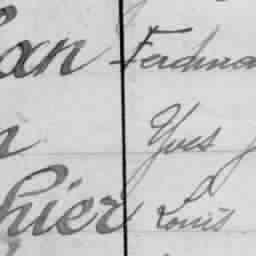 an Ferdina
n Yves J
hier Louis